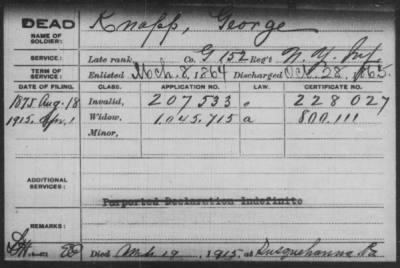 DEAD
Knapp, George
NAME OF SOLDIER:
SERVICE: Late rank, Co. G 152 Reg't N. Y. Inf
TERM OF SERVICE: Enlisted Mch. 8, 1864 Discharged Oct. 28, 1865.
DATE OF FILING. CLASS. APPLICATION NO. LAW. CERTIFICATE NO.
1875 Aug. 18 Invalid, 207.533 228027
1915. Apr. 1 Widow, 1.045.715 a 800.111
Minor,
ADDITIONAL SERVICES:
Purported Declaration Indefinite
REMARKS:
Died Mch 19, 1915, at Susquehanna Pa